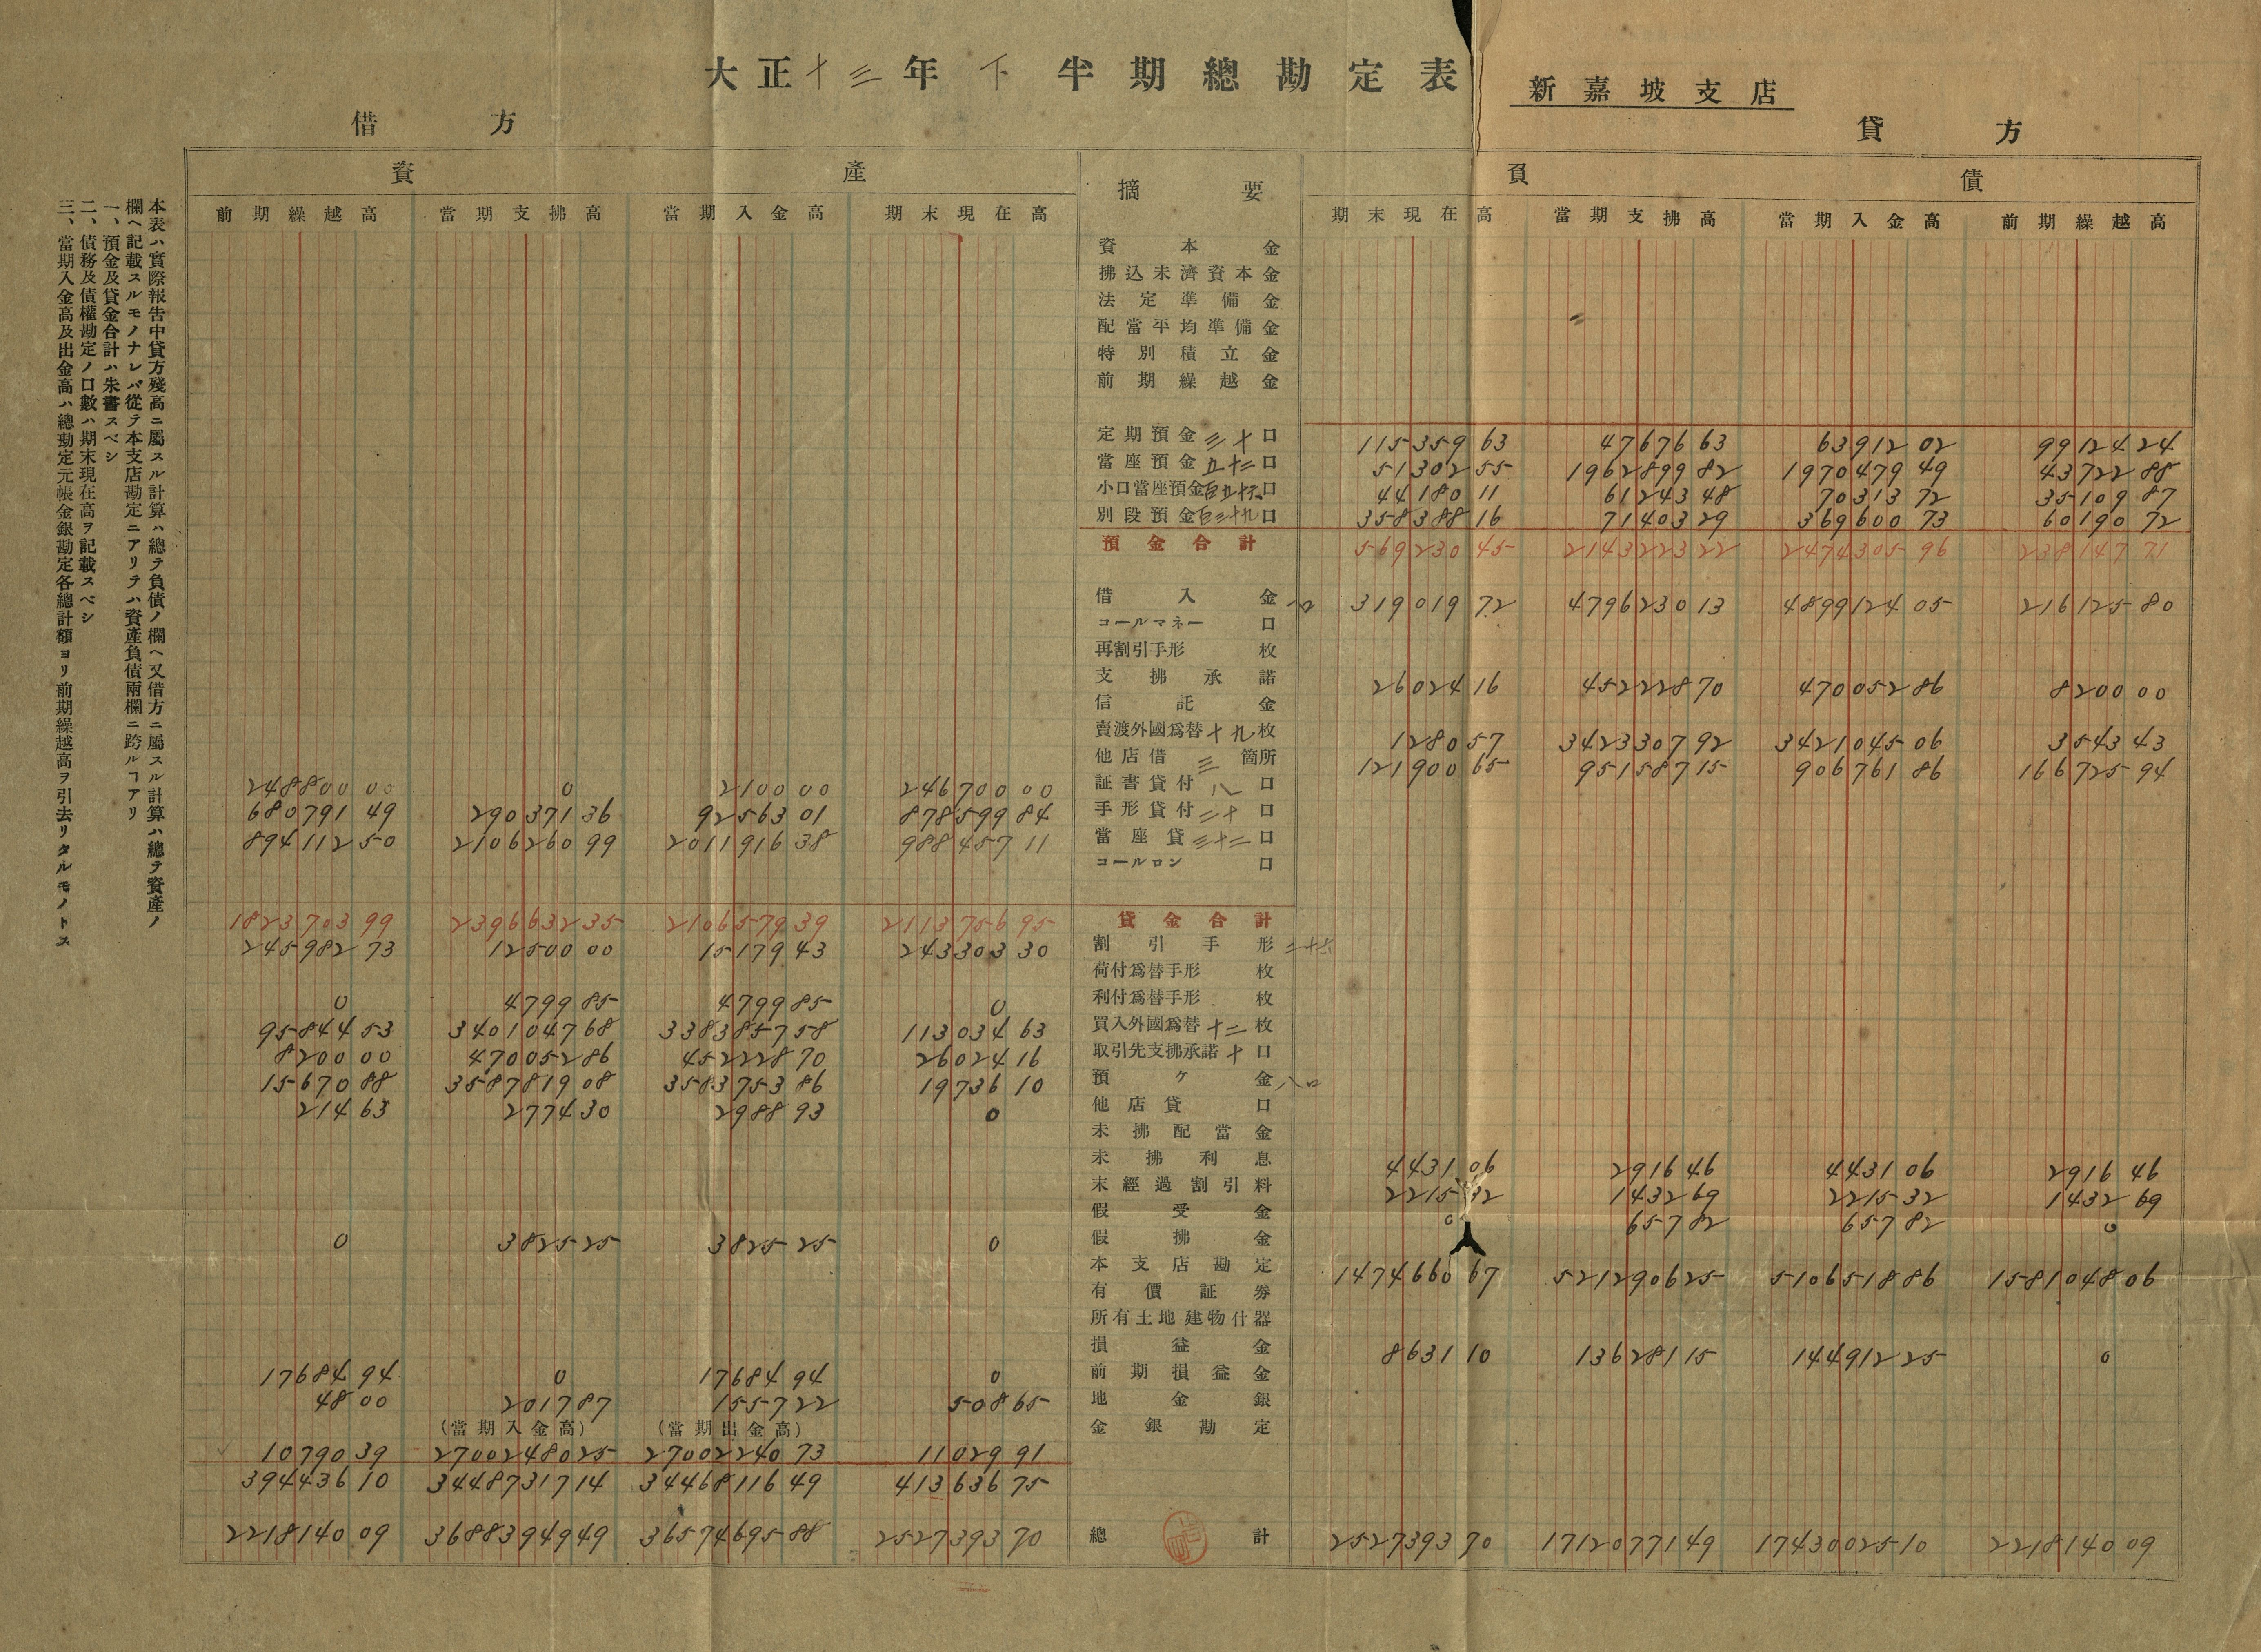 大正十三年下半期總勘定表
新嘉坡支店
借方
貸方
資產
摘要
負債
前期繰越高 當期支拂高 當期入金高 期末現在高 期末現在高 當期支拂高 當期入金高 前期繰越高
本表ハ實際報告中貸方殘高ニ屬スル計算ハ總テ負債ノ欄ヘ又借方ニ屬スル計算ハ總テ資產ノ
欄ヘ記載スルモノナレバ從テ本支店勘定ニアリテハ資產負債兩欄ニ跨ルヿアリ
一、預金及貸金合計ハ朱書スベシ
二、債務及債權勘定ノ口數ハ期末現在高ヲ記載スベシ
三、當期入金高及出金高ハ總勘定元帳金銀勘定各總計額ヨリ前期繰越高ヲ引去リタルモノトス
資本金
拂込未濟資本金
法定準備金
配當平均準備金
特別積立金
前期繰越金
定期預金三十口 115359 63 47676 63 63912 02 99124 24
當座預金五十二口 51302 55 1962899 82 1970479 49 43722 88
小口當座預金百五十六口 44180 11 61243 48 70313 72 35109 87
別段預金百三十九口 358388 16 71403 29 369600 73 60190 72
預金合計 569230 45 2143223 22 2474305 96 238147 71
借入金一口 319019 72 4796230 13 4899124 05 216125 80
コールマネー口
再割引手形枚
支拂承諾 26024 16 452228 70 470052 86 8200 00
信託金
賣渡外國爲替十九枚 1280 57 3423307 92 3421045 06 3543 43
他店借三箇所 121900 65 951587 15 906761 86 166725 94
248800 00 0 2100 00 246700 00 証書貸付八口
680791 49 290371 36 92563 01 878599 84 手形貸付二十口
894112 50 2106260 99 2011916 38 988457 11 當座貸三十二口
コールロン口
1823703 99 2396632 35 2106579 39 2113756 95 貸金合計
245982 73 12500 00 15179 43 243303 30 割引手形二十六
荷付爲替手形枚
0 4799 85 4799 85 0 利付爲替手形枚
95844 53 3401047 68 3383857 58 113034 63 買入外國爲替十二枚
8200 00 470052 86 452228 70 26024 16 取引先支拂承諾十口
15670 88 3587819 08 3583753 86 19736 10 預ケ金八口
214 63 2774 30 2988 93 0 他店貸口
未拂配當金
未拂利息 4431 06 2916 46 4431 06 2916 46
未經過割引料 2215 32 1432 69 2215 32 1432 69
假受金 0 657 82 657 82 0
0 3825 25 3825 25 0 假拂金
本支店勘定 1474660 67 5212906 25 5106518 86 1581048 06
有價証券
所有土地建物什器
損益金 8631 10 136281 15 144912 25 0
17684 94 0 17684 94 0 前期損益金
48 00 2017 87 1557 22 508 65 地金銀
(當期入金高) (當期出金高)
10790 39 27002480 25 27002240 73 11029 91 金銀勘定
394436 10 34487317 14 34468116 49 413636 75
2218140 09 36883949 49 36574695 88 2527393 70 總計 2527393 70 17120771 49 17430025 10 2218140 09